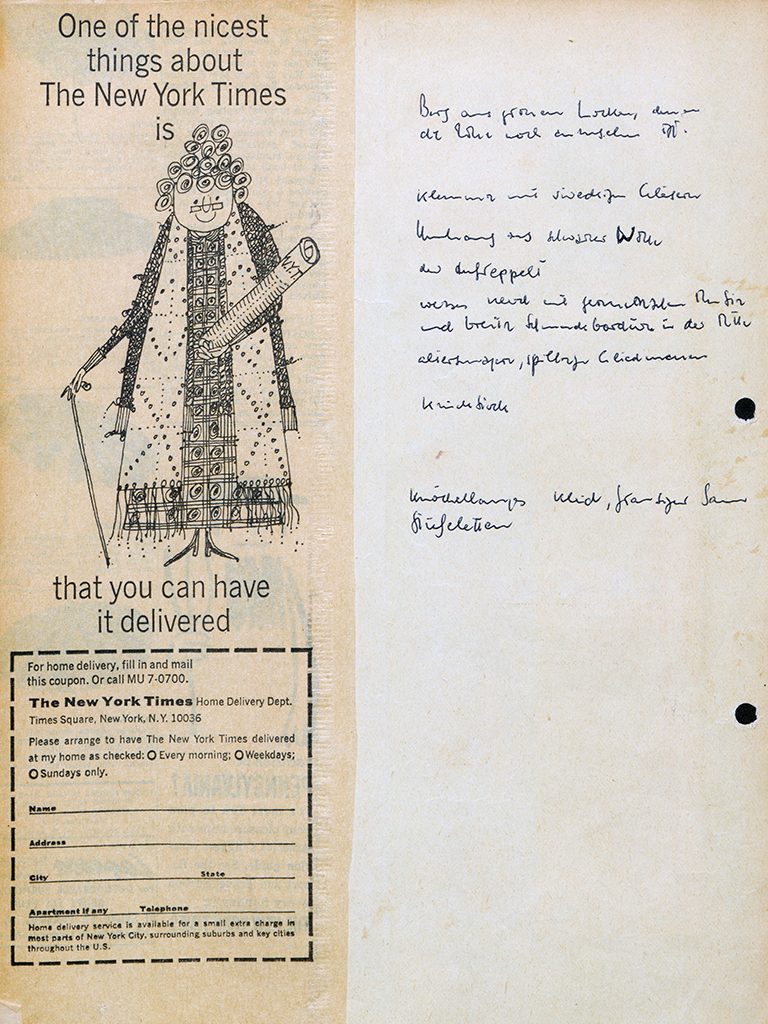 One of the nicest
things about
The New York Times
is
that you can have
it delivered
For home delivery, fill in and mail
this coupon. Or call MU 7-0700.
The New York Times Home Delivery Dept.
Times Square, New York, N.Y. 10036
Please arrange to have The New York Times delivered
at my home as checked: O Every morning; O Weekdays;
O Sundays only.
Name
Address
City State
Apartment if any Telephone
Home delivery service is available for a small extra charge in
most parts of New York City, surrounding suburbs and key cities
throughout the U.S.
Berg aus grossen Locken, denen
die Rolle noch anzusehen ist.
Klemmer mit viereckigen Gläsern
Umhang aus schwarzer Wolle
der aufreppelt
mit geometrischem Muster
und breiter Schmuckbordüre in der Mitte
Gliedmassen
Krückstock
knöchellanges Kleid, fransiger Saum
Stiefeletten